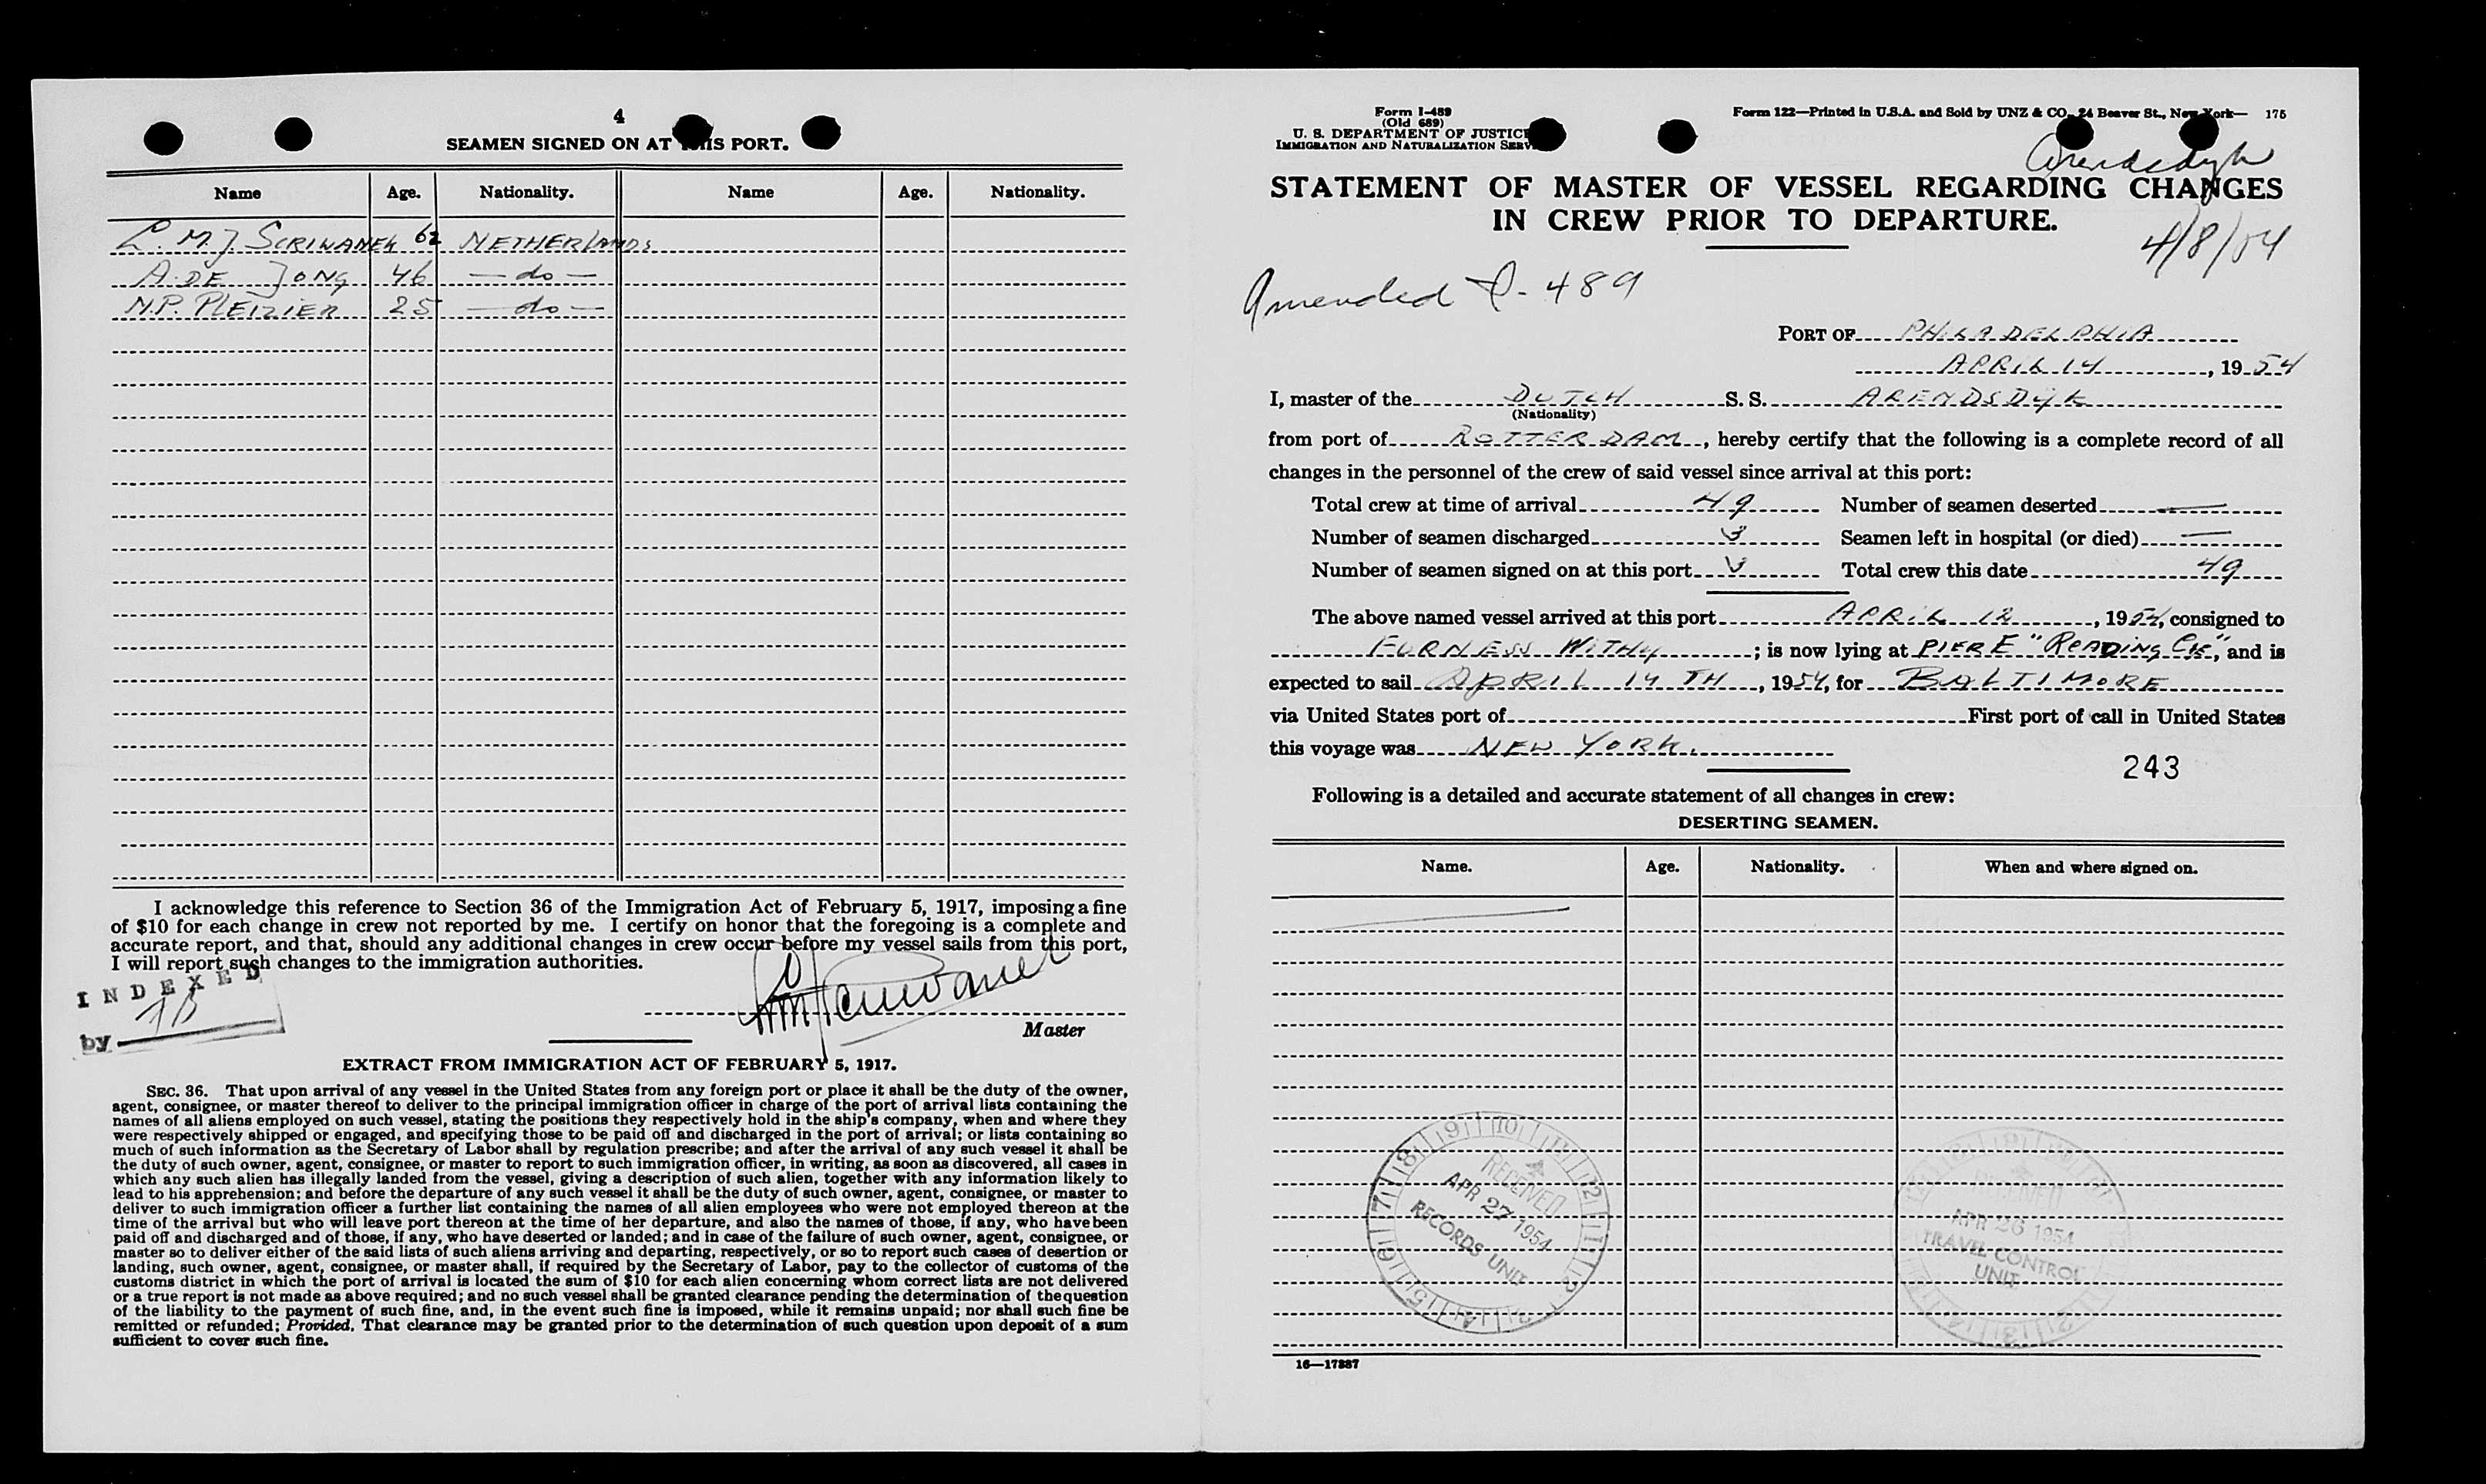 4
SEAMEN SIGNED ON AT THIS PORT.
Name Age. Nationality. Name Age. Nationality.
L. M. J. SCRIWANEK 62 NETHERLANDS
A. DE JONG 46 — do —
N.P. PLEIZIER 25 — do —
I acknowledge this reference to Section 36 of the Immigration Act of February 5, 1917, imposing a fine
of $10 for each change in crew not reported by me. I certify on honor that the foregoing is a complete and
accurate report, and that, should any additional changes in crew occur before my vessel sails from this port,
I will report such changes to the immigration authorities.
INDEXED
by
Master
EXTRACT FROM IMMIGRATION ACT OF FEBRUARY 5, 1917.
SEC. 36. That upon arrival of any vessel in the United States from any foreign port or place it shall be the duty of the owner,
agent, consignee, or master thereof to deliver to the principal immigration officer in charge of the port of arrival lists containing the
names of all aliens employed on such vessel, stating the positions they respectively hold in the ship's company, when and where they
were respectively shipped or engaged, and specifying those to be paid off and discharged in the port of arrival; or lists containing so
much of such information as the Secretary of Labor shall by regulation prescribe; and after the arrival of any such vessel it shall be
the duty of such owner, agent, consignee, or master to report to such immigration officer, in writing, as soon as discovered, all cases in
which any such alien has illegally landed from the vessel, giving a description of such alien, together with any information likely to
lead to his apprehension; and before the departure of any such vessel it shall be the duty of such owner, agent, consignee, or master to
deliver to such immigration officer a further list containing the names of all alien employees who were not employed thereon at the
time of the arrival but who will leave port thereon at the time of her departure, and also the names of those, if any, who have been
paid off and discharged and of those, if any, who have deserted or landed; and in case of the failure of such owner, agent, consignee, or
master so to deliver either of the said lists of such aliens arriving and departing, respectively, or so to report such cases of desertion or
landing, such owner, agent, consignee, or master shall, if required by the Secretary of Labor, pay to the collector of customs of the
customs district in which the port of arrival is located the sum of $10 for each alien concerning whom correct lists are not delivered
or a true report is not made as above required; and no such vessel shall be granted clearance pending the determination of the question
of the liability to the payment of such fine, and, in the event such fine is imposed, while it remains unpaid; nor shall such fine be
remitted or refunded; Provided, That clearance may be granted prior to the determination of such question upon deposit of a sum
sufficient to cover such fine.
Form I-489
(Old 689)
U. S. DEPARTMENT OF JUSTICE
IMMIGRATION AND NATURALIZATION SERV
Form 122—Printed in U.S.A. and Sold by UNZ & CO., 24 Beaver St., New York— 175
Arendsdyk
STATEMENT OF MASTER OF VESSEL REGARDING CHANGES
IN CREW PRIOR TO DEPARTURE.
4/8/54
Amended I-489
PORT OF PHILADELPHIA
APRIL 14, 1954
I, master of the DUTCH S. S. ARENDSDYK
(Nationality)
from port of ROTTERDAM, hereby certify that the following is a complete record of all
changes in the personnel of the crew of said vessel since arrival at this port:
Total crew at time of arrival 49 Number of seamen deserted —
Number of seamen discharged 3 Seamen left in hospital (or died) —
Number of seamen signed on at this port 3 Total crew this date 49
The above named vessel arrived at this port APRIL 12, 1954, consigned to
FURNESS WITHY; is now lying at PIER E "READING Co", and is
expected to sail APRIL 14 TH, 1954, for BALTIMORE
via United States port of First port of call in United States
this voyage was NEW YORK.
243
Following is a detailed and accurate statement of all changes in crew:
DESERTING SEAMEN.
Name. Age. Nationality. When and where signed on.
RECEIVED
APR 27 1954
RECORDS UNIT
RECEIVED
APR 26 1954
TRAVEL CONTROL
UNIT
16—17887